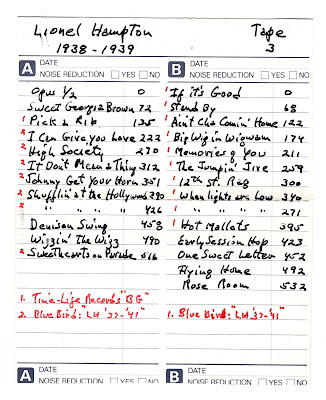 Lionel Hampton Tape
1938 - 1939 3
A DATE
NOISE REDUCTION YES NO
Opus 1/2 0
Sweet Georgia Brown 72
1 Pick a Rib 135
2 I Can Give you Love 222
2 High Society 270
2 It Don't Mean a Thing 312
2 Johnny Get Your Horn 351
2 Shufflin' at the Hollywood 390
2 " " " " 426
Denison Swing 458
Wizzin' the Wizz 490
2 Sweethearts on Parade 516
1. Time-Life Records "BG"
2. Blue Bird: "LH '37-'41"
B DATE
NOISE REDUCTION YES NO
1 If it's Good 0
1 Stand By 68
1 Ain't Cha Comin' Home 122
1 Big Wig in Wigwam 174
1 Memories of you 211
1 The Jumpin' Jive 259
1 12th St. Rag 300
1 When lights are Low 340
1 " " " 271
1 Hot Mallets 395
Early Session Hop 423
One Sweet Letter 452
Flying Home 492
Rose Room 532
1. Blue Bird: "LH '37-'41"
A DATE
NOISE REDUCTION YES NO
B DATE
NOISE REDUCTION YES NO